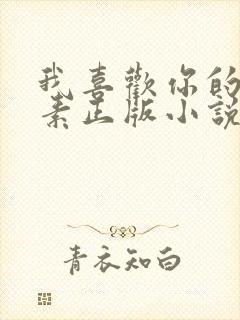 我喜歡你的
素正版小說
青衣知白